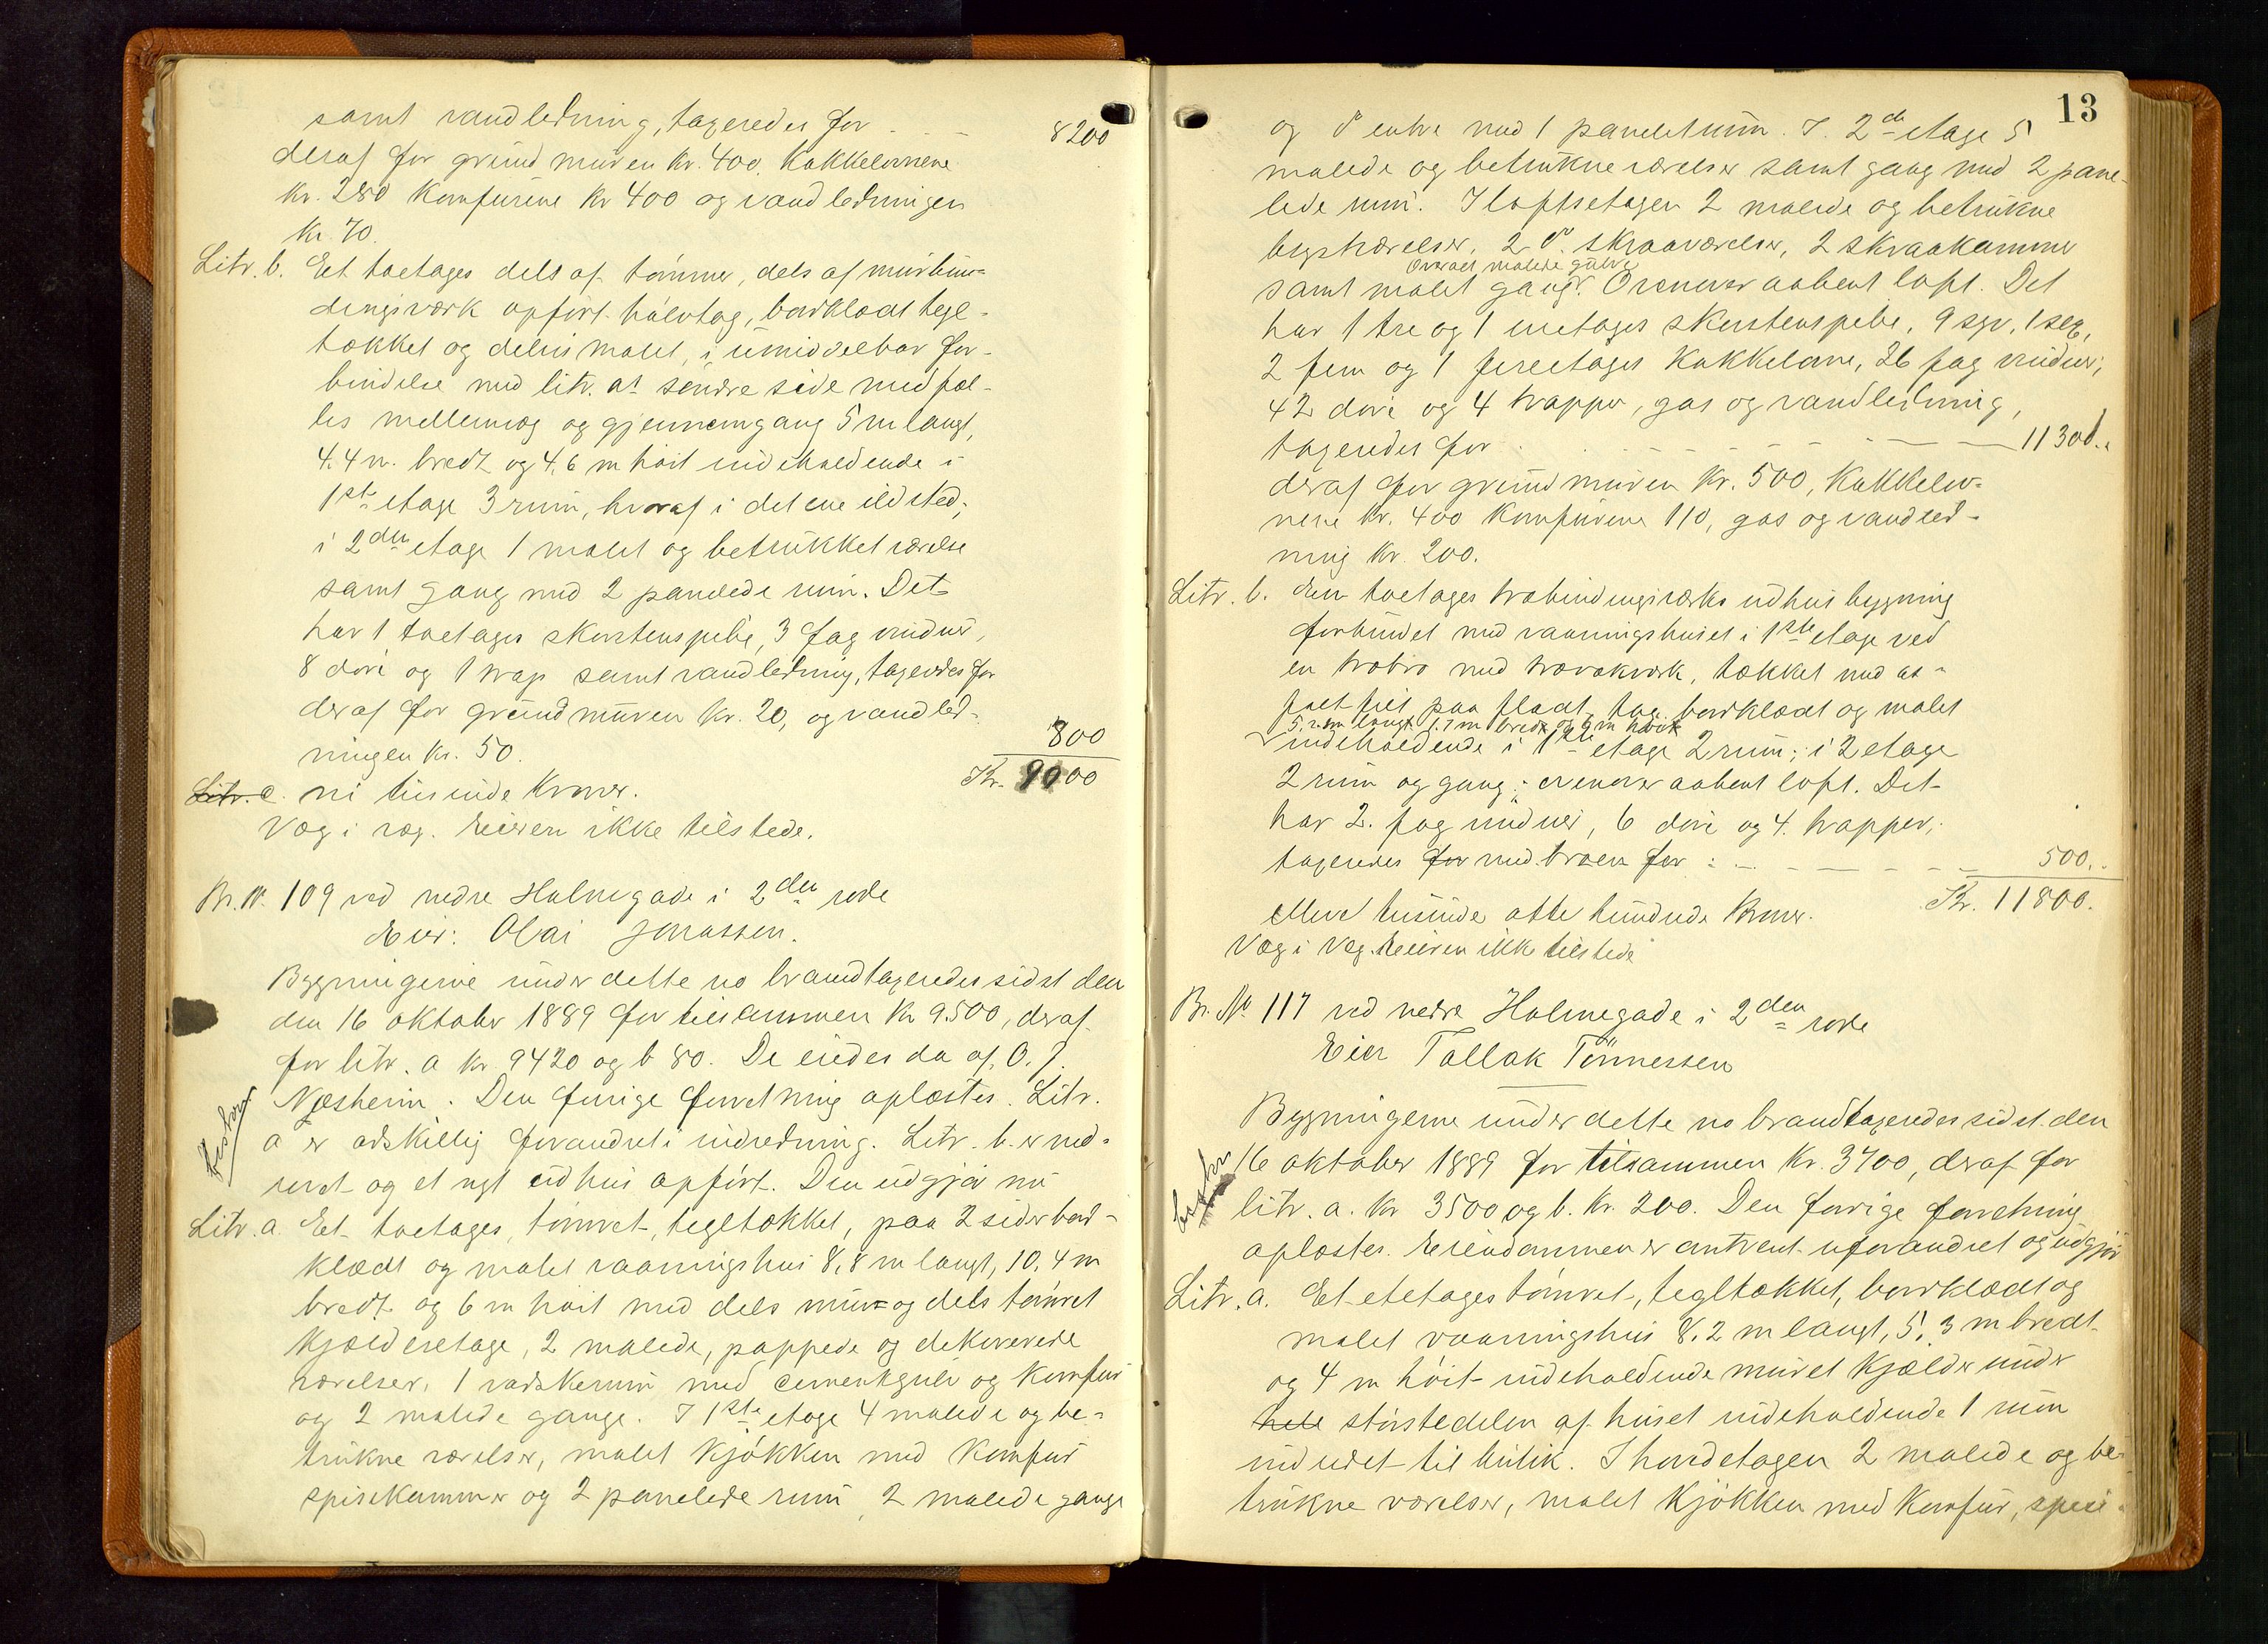 samt vandledning, taxeredes for - - - 8200
deraf for grundmuren kr. 400. Kakkelovnene
kr. 280 Komfurene kr 400 og vandledningen
kr. 70.
Litr. b. Et toetages dels af tømmer, dels af murbin-
dingsværk opført halvtag, bordklædt tegl-
tækket og delvis malet, i umiddelbar for-
bindelse med litr. as søndre side med fæl-
les mellemvæg og gjennemgang 5 m langt,
4.4 m. bredt og 4,6 m høit indeholdende i
1ste etage 3 rum, hvoraf i det ene ildsted;
i 2den etage 1 malet og betrukket værelse
samt gang med 2 panelede rum. Det
har 1 toetages skorstenspibe, 3 fag vinduer,
8 døre og 1 trap samt vandledning, taxeredes for
deraf for grundmuren kr. 20, og vandled-
ningen kr. 50. 800
Kr. 9000
Litr. c. ni tusinde kroner.
Væg i væg. Eieren ikke tilstede.
Br. Nº 109 ved nedre Holmegade i 2den rode
Eier: Olai Jonassen.
Bygningerne under dette no brandtaxeredes sidst den
den 16 oktober 1889 for tilsammen kr 9500, deraf
for litr. a kr 9420 og b 80. De eiedes da af O. J.
Næsheim. Den forrige forretning oplæstes. Litr.
a er adskillig forandret i indredning. Litr. b. er ned-
revet og et nyt udhus opført. Den udgjør nu
Litr. a. Et toetages, tømret, tegltækket, paa 2 sider bord-
klædt og malet vaaningshus 8,8 m langt, 10,4 m
bredt og 6 m høit med dels muret og dels tømret
kjælderetage, 2 malede, pappede og dekorerede
værelser, 1 vadskerum med cementgulv og komfur
og 2 malede gange. I 1ste etage 4 malede og be-
trukne værelser, malet kjøkken med komfur
spisekammer og 2 panelede rum, 2 malede gange
13
og do entre med 1 panelet rum. I 2den etage 5
malede og betrukne værelser samt gang med 2 pane-
lede rum. I loftsetagen 2 malede og betrukne
kvistværelser, 2 do. skraaværelser, 2 skraakammer
Overalt malede gulve
samt malet gang. Ovenover aabent loft. Det
har 1 tre og 1 enetages skorstenspibe, 9 syv, 1 sex,
2 fem og 1 fireetages kakkelovne, 26 fag vinduer,
42 døre og 4 trapper, gas og vandledning,
taxeredes for - - - - 11300..
deraf for grundmuren kr. 500, kakkelov-
nene kr. 400 komfurene 110, gas og vandled-
ning kr. 200.
Litr. b. En toetages træbindingsværks udhusbygning
forbundet med vaaningshuset i 1ste etage ved
en træbro med trærækværk, tækket med as-
faltfilt paa fladt tag, bordklædt og malet
indeholdende i 1ste etage 2 rum; i 2 etage
2 rum og gang; ovenover aabent loft. Det
har 2. fag vinduer, 6 døre og 4. trapper,
taxeredes for med broen for: - - - - 500..
Kr. 11800.
elleve tusinde otte hundrede kroner.
Væg i Væg. Eieren ikke tilstede
Br. Nº 117 ved nedre Holmegade i 2den rode
Eier Tallak Tönnessen
Bygningerne under dette no brandtaxeredes sidst den
16 oktober 1889 for tilsammen kr. 3700, deraf for
litr. a. kr 3500 og b. kr. 200. Den forrige forretning
oplæstes. Eiendommen er omtrent uforandret og udgjør
Litr. a. Et etetages tømret, tegltækket, bordklædt og
malet vaaningshus 8,2 m langt, 5,3 m bredt
og 4 m høit indeholdende muret kjælder under
hele størstedelen af huset indeholdende 1 rum
indredet til butik. I hovedetagen 2 malede og be-
trukne værelser, malet kjøkken med komfur, spise-